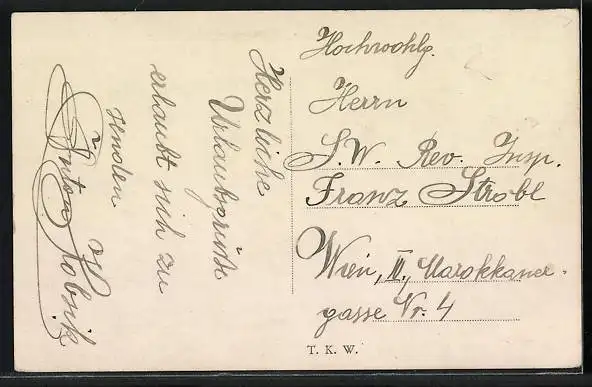 Herzliche
Urlaubsgrüße
erlaubt sich zu
senden
Anton
Hochwohlg.
Herrn
S.W. Rev. Insp.
Franz Strobl
Wien, III., Marokkaner-
gasse Nr. 4
T. K. W.